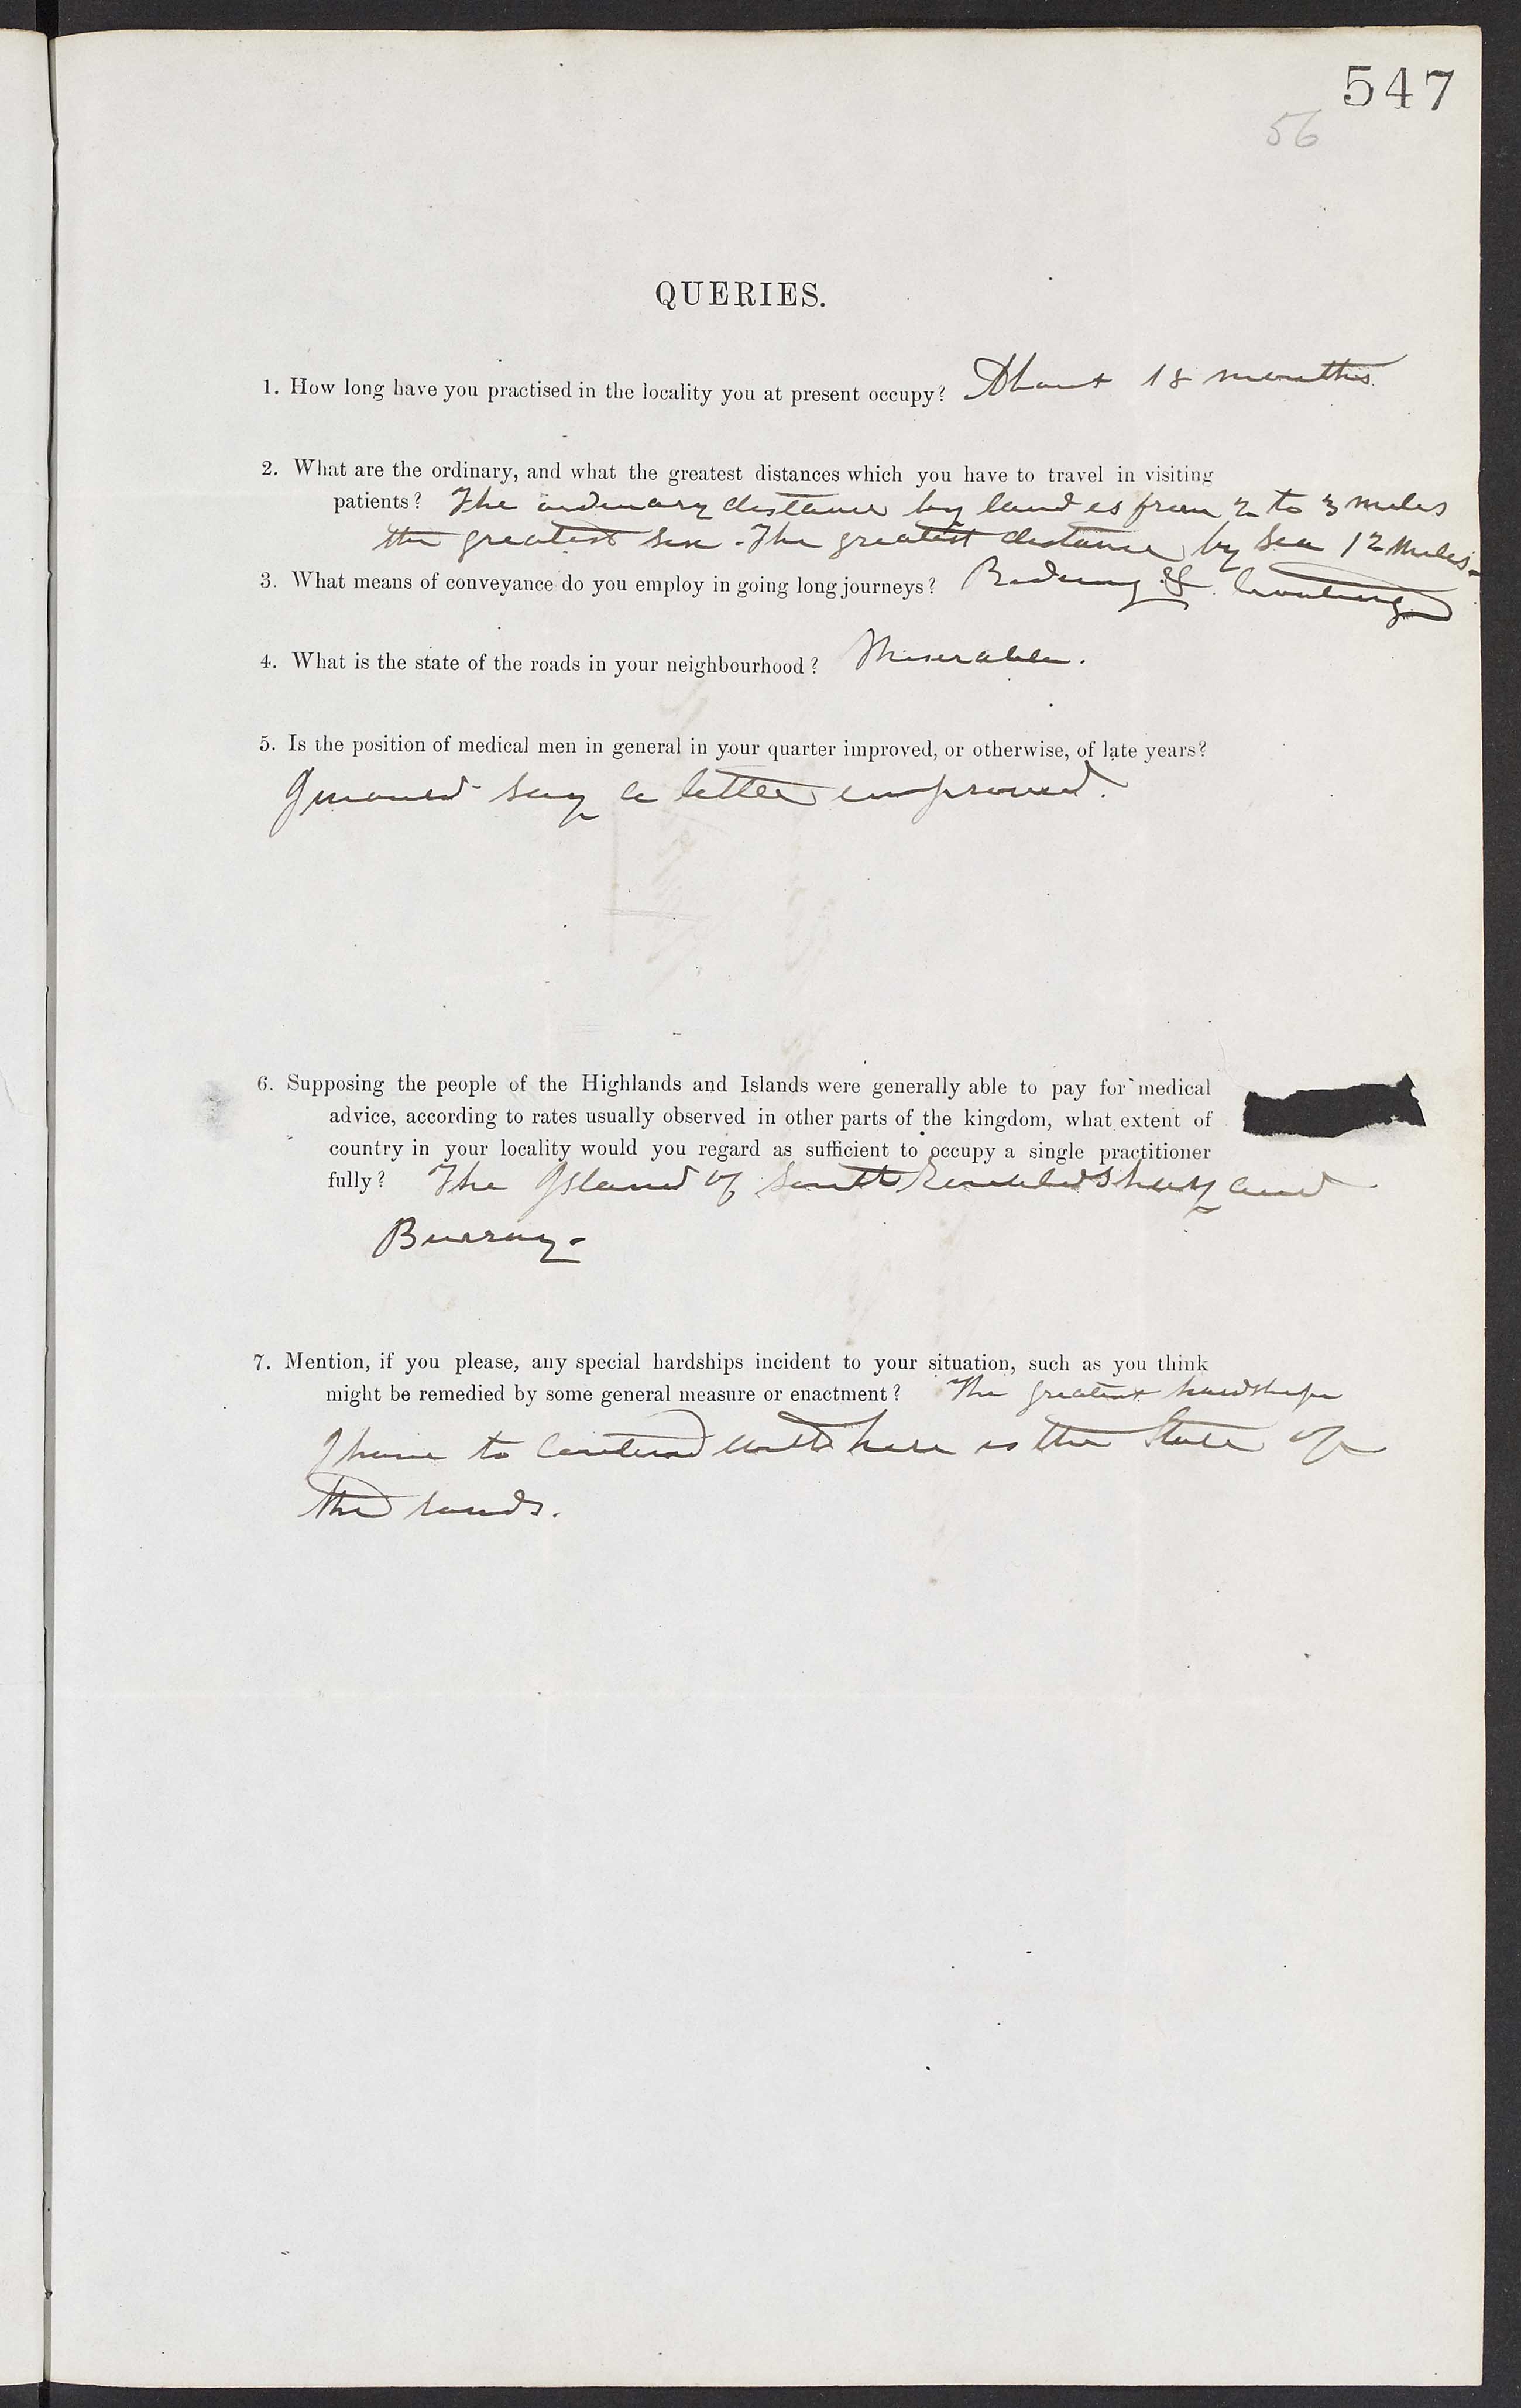 547
56
QUERIES.
1. How long have you practised in the locality you at present occupy? About 18 months.
2. What are the ordinary, and what the greatest distances which you have to travel in visiting
patients? The ordinary distance by land is from 2 to 3 miles
the greatest six. The greatest distance by sea 12 miles.
3. What means of conveyance do you employ in going long journeys? Riding & boating
4. What is the state of the roads in your neighbourhood? Miserable.
5. Is the position of medical men in general in your quarter improved, or otherwise, of late years?
I would say a little improved.
6. Supposing the people of the Highlands and Islands were generally able to pay for medical
advice, according to rates usually observed in other parts of the kingdom, what extent of
country in your locality would you regard as sufficient to occupy a single practitioner
fully? The Island of South Ronaldshay and
Burray.
7. Mention, if you please, any special hardships incident to your situation, such as you think
might be remedied by some general measure or enactment? The greatest hardship
I have to contend with here is the state of
the roads.